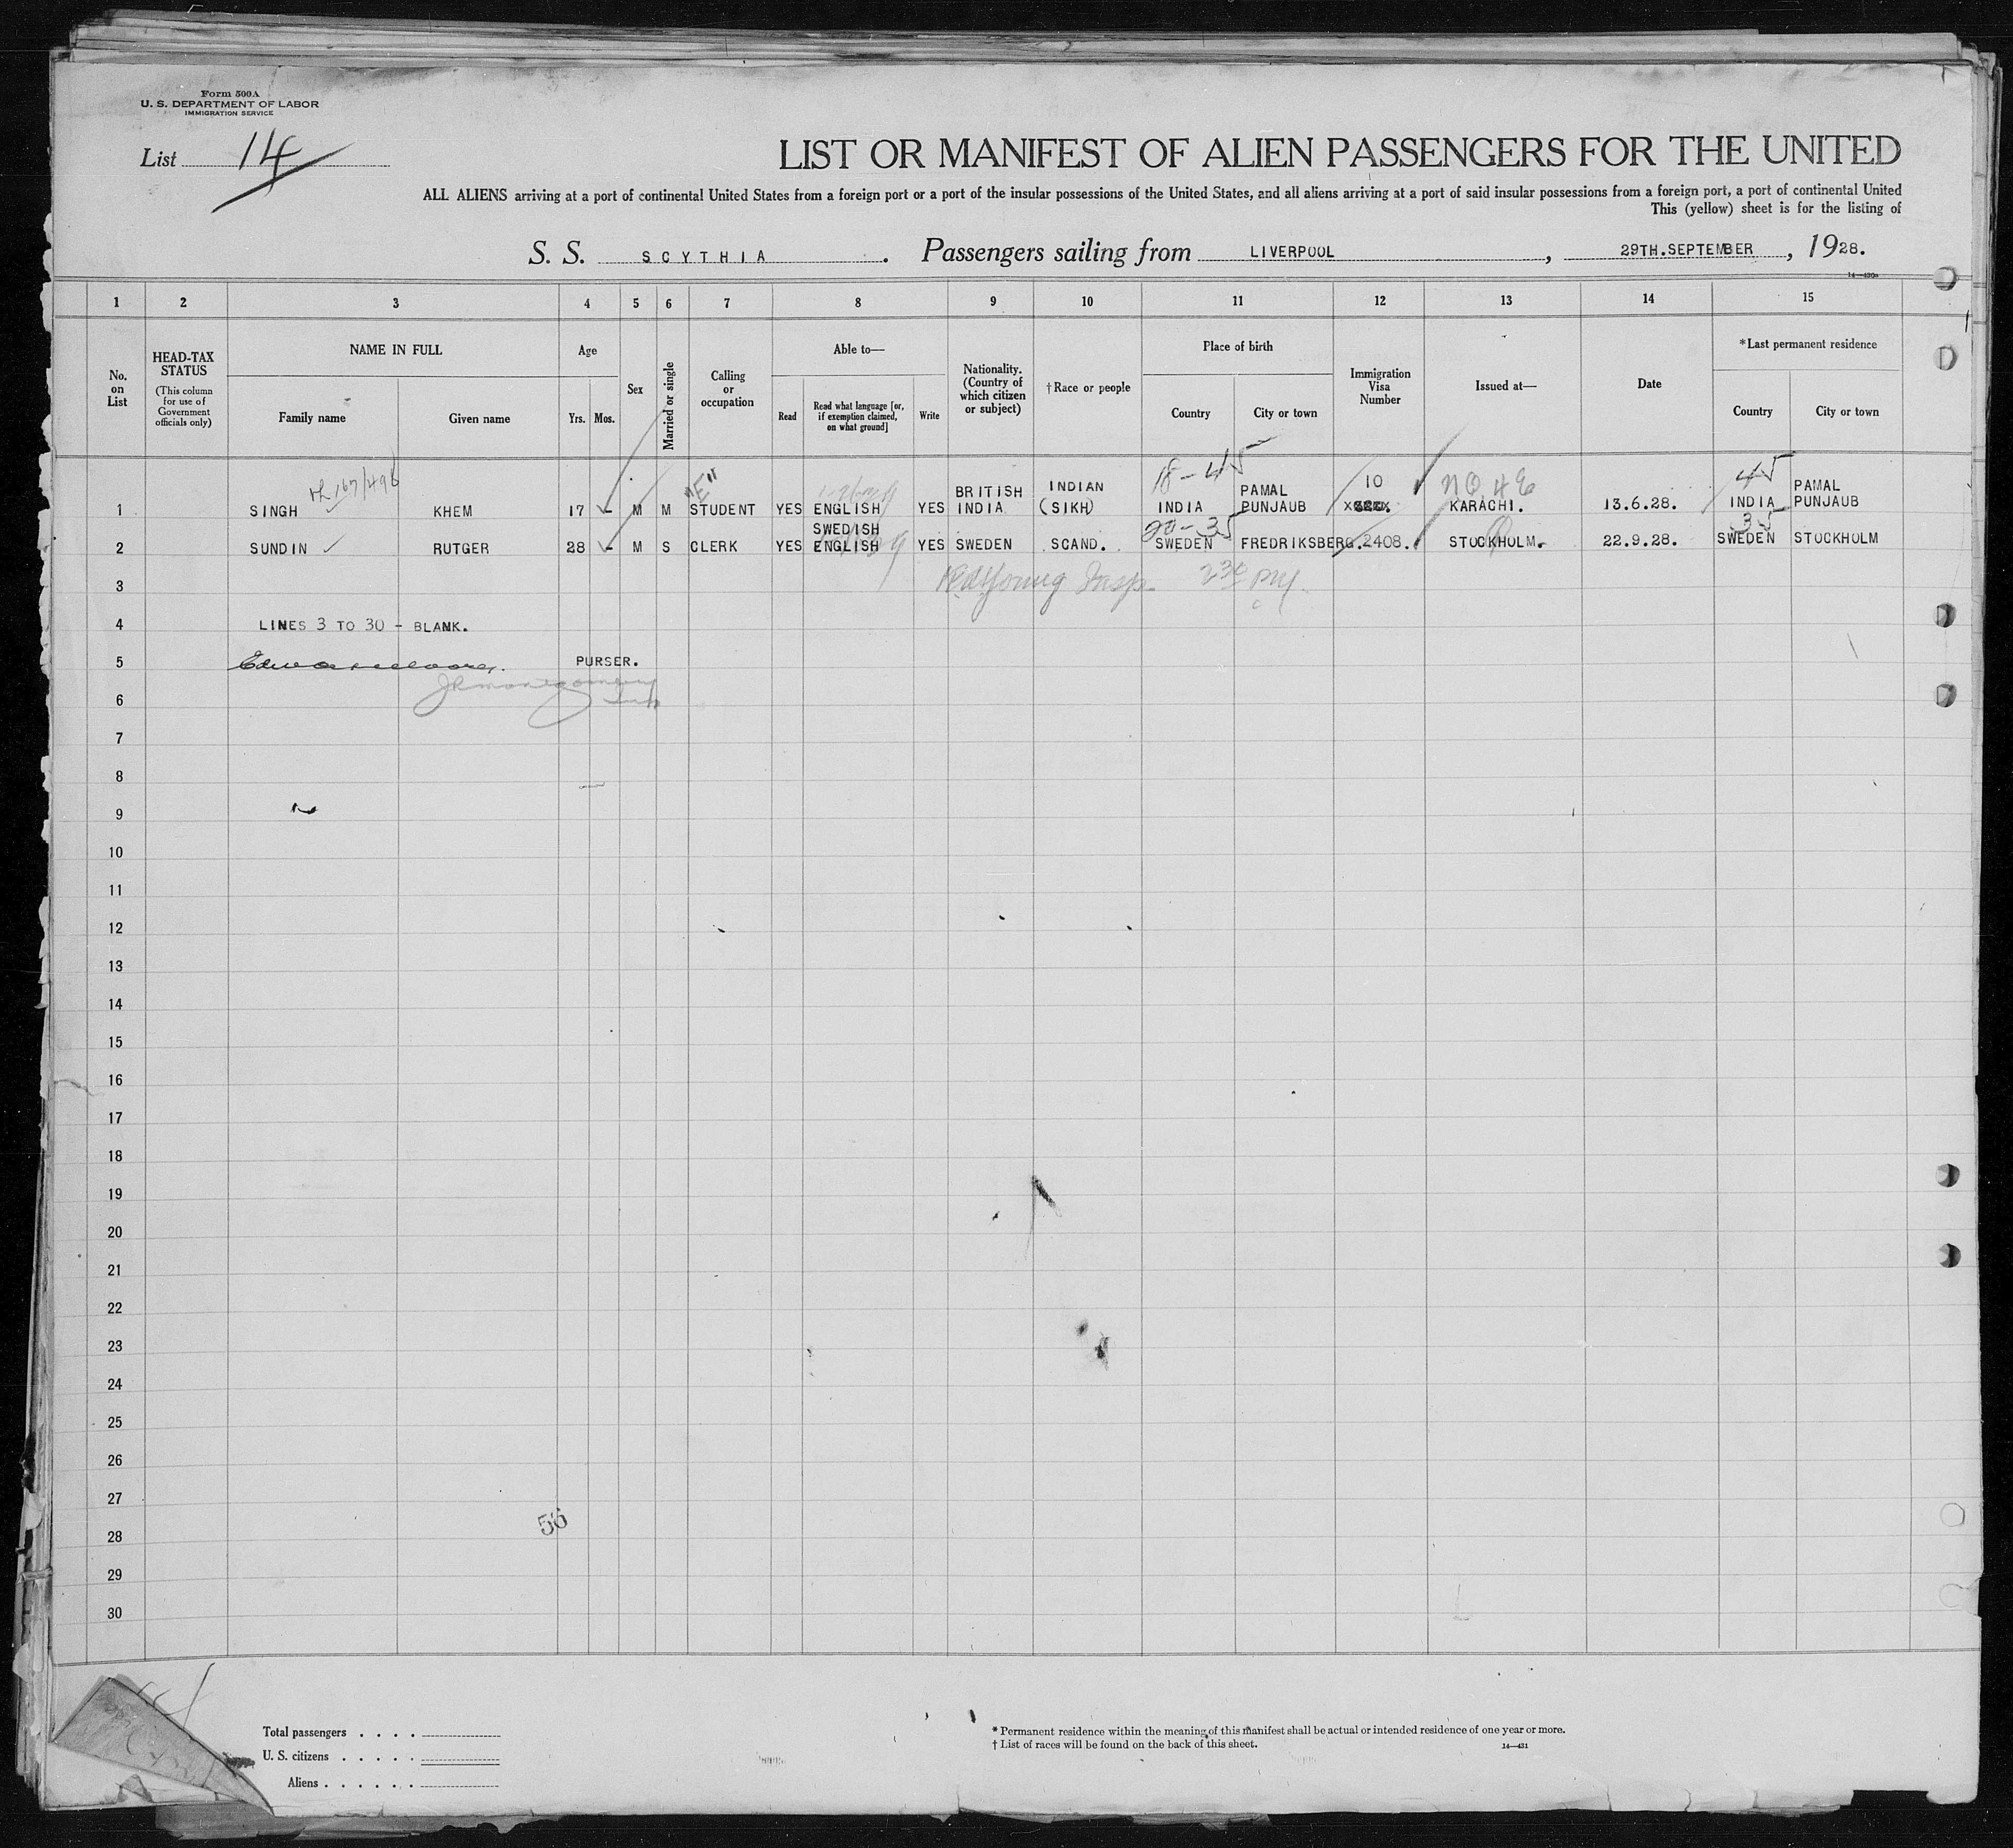 Form 500A
U. S. DEPARTMENT OF LABOR
IMMIGRATION SERVICE
List 14
LIST OR MANIFEST OF ALIEN PASSENGERS FOR THE UNITED
ALL ALIENS arriving at a port of continental United States from a foreign port or a port of the insular possessions of the United States, and all aliens arriving at a port of said insular possessions from a foreign port, a port of continental United
This (yellow) sheet is for the listing of
S. S. SCYTHIA. Passengers sailing from LIVERPOOL, 29TH.SEPTEMBER, 1928.
1 2 3 4 5 6 7 8 9 10 11 12 13 14 15
No. on List
HEAD-TAX STATUS
(This column for use of Government officials only)
NAME IN FULL
Family name Given name
Age
Yrs. Mos.
Sex
Married or single
Calling or occupation
Able to—
Read
Read what language [or, if exemption claimed, on what ground]
Write
Nationality. (Country of which citizen or subject)
†Race or people
Place of birth
Country City or town
Immigration Visa Number
Issued at—
Date
*Last permanent residence
Country City or town
"E" 18-45 10 N.Q. 4E 45
1 SINGH KHEM 17 - M M STUDENT YES ENGLISH YES BRITISH INDIA INDIAN (SIKH) INDIA PAMAL PUNJAUB KARACHI. 13.6.28. INDIA PAMAL PUNJAUB
20-35 35
2 SUNDIN RUTGER 28 - M S CLERK YES SWEDISH ENGLISH YES SWEDEN SCAND. SWEDEN FREDRIKSBERG. 2408. STOCKHOLM. 22.9.28. SWEDEN STOCKHOLM
3
4 LINES 3 TO 30 - BLANK.
5 PURSER.
6
7
8
9
10
11
12
13
14
15
16
17
18
19
20
21
22
23
24
25
26
27
56
28
29
30
Total passengers
U. S. citizens
Aliens
* Permanent residence within the meaning of this manifest shall be actual or intended residence of one year or more.
† List of races will be found on the back of this sheet.
14—431